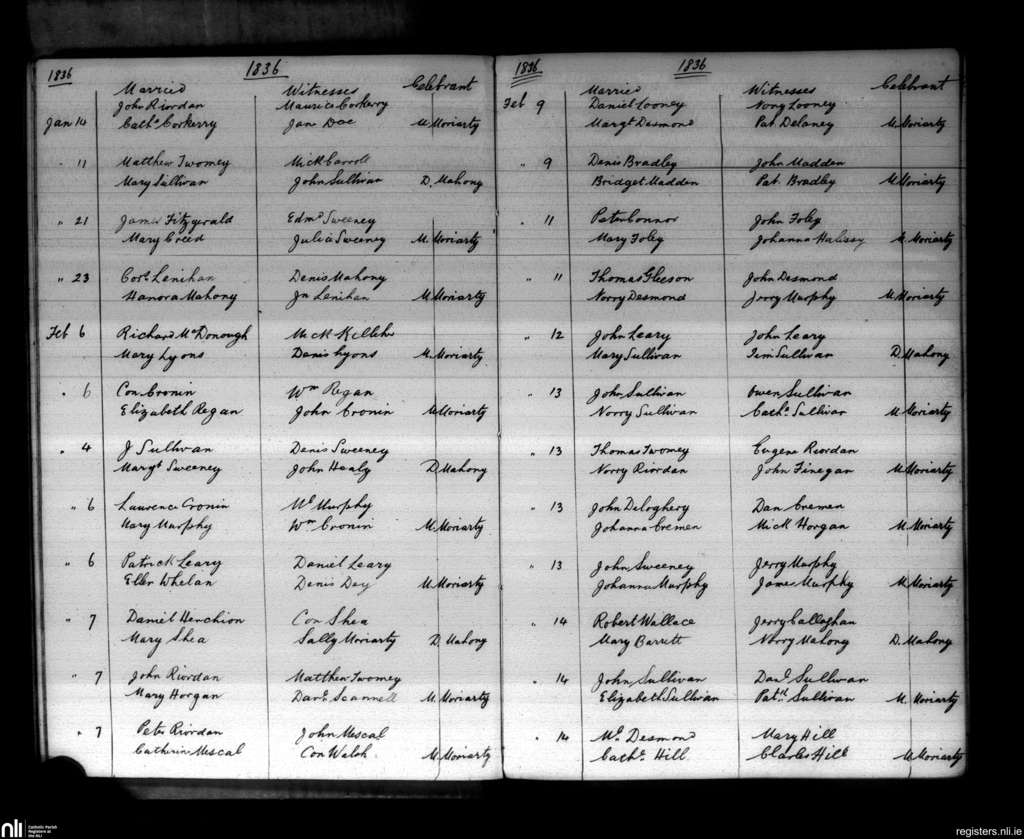 1836 1836
Married Witnesses Celebrant
John Riordan Maurice Corkerry
Jan 14 Cathe Corkerry Jane Doe M Moriarty
" 11 Matthew Twomey Mick Carroll
Mary Sullivan John Sullivan D. Mahony
" 21 James Fitzgerald Edmd Sweeney
Mary Creed Julia Sweeney M. Moriarty
" 23 Cors Lenihan Denis Mahony
Hanora Mahony Jn Lenihan M Moriarty
Feb 6 Richard McDonough Mick Kelleher
Mary Lyons Denis Lyons M. Moriarty
" 6 Con Cronin Wm Regan
Elizabeth Regan John Cronin M Moriarty
" 4 J Sullivan Denis Sweeney
Margt Sweeney John Healy D Mahony
" 6 Laurence Cronin Ml Murphy
Mary Murphy Wm Cronin M. Moriarty
" 6 Patrick Leary Daniel Leary
Ellen Whelan Denis Dey M Moriarty
" 7 Daniel Henchion Con Shea
Mary Shea Sally Moriarty D. Mahony
" 7 John Riordan Matthew Twomey
Mary Horgan Danl Scannell M. Moriarty
" 7 Peter Riordan John Mescal
Catherine Mescal Con Walsh M Moriarty
1836 1836
Married Witnesses Celebrant
Feb 9 Daniel Looney Nony Looney
Margt Desmond Pat. Delaney M Moriarty
" 9 Denis Bradley John Madden
Bridget Madden Pat. Bradley M Moriarty
" 11 Peter Connor John Foley
Mary Foley Johanna Halissy M. Moriarty
" 11 Thomas Gleeson John Desmond
Norry Desmond Jerry Murphy M Moriarty
" 12 John Leary John Leary
Mary Sullivan Tim Sullivan D. Mahony
" 13 John Sullivan Owen Sullivan
Norry Sullivan Cathe Sullivan M Moriarty
" 13 Thomas Twomey Eugene Riordan
Norry Riordan John Finegan M Moriarty
" 13 John Deloghery Dan Cremen
Johanna Cremen Mick Horgan M. Moriarty
" 13 John Sweeney Jerry Murphy
Johanna Murphy James Murphy M Moriarty
" 14 Robert Wallace Jerry Callaghan
Mary Barrett Norry Mahony D. Mahony
" 14 John Sullivan Danl Sullivan
Elizabeth Sullivan Patk Sullivan M. Moriarty
" 14 Ml Desmond Mary Hill
Cathe Hill Charles Hill M Moriarty
nli
Catholic Parish
Registers at
the NLI
registers.nli.ie